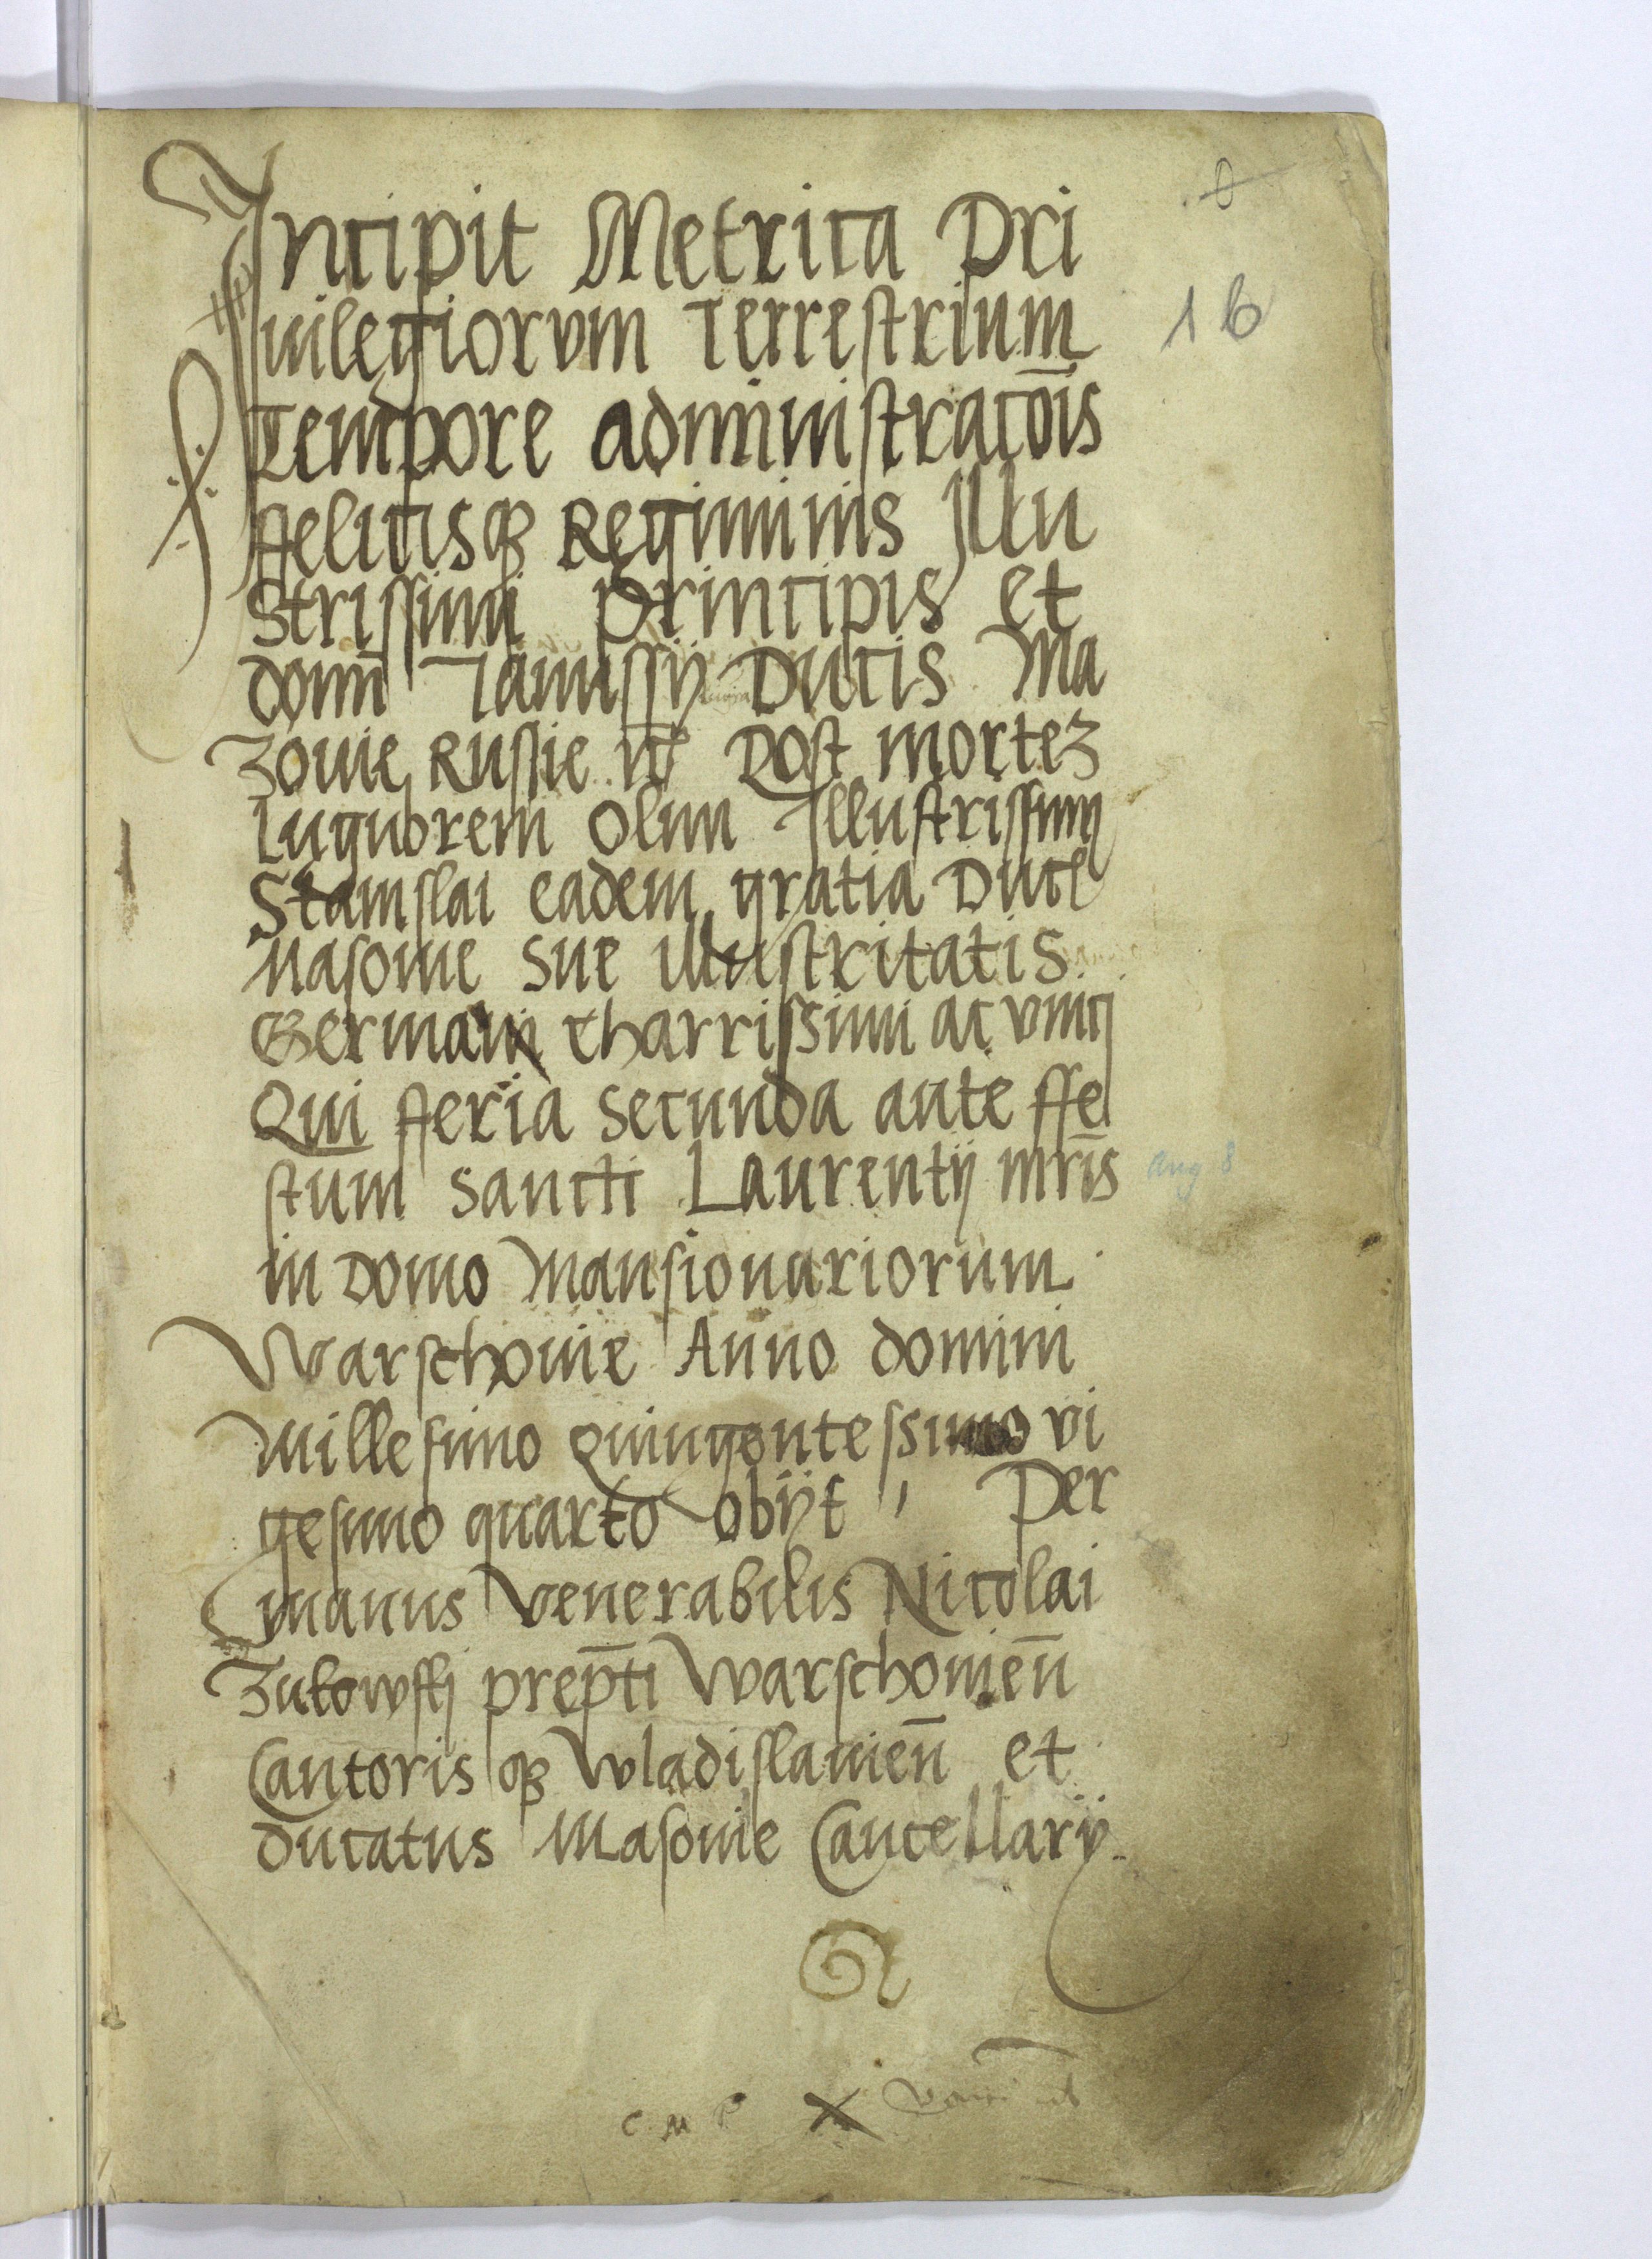 Incipit Metrica Pri
uilegiorum Terrestrium
Tempore administracōis
ffelicisqȝ Regiminis Illu
strissimi principis et
domī Janussÿ Ducis Ma
zouie Russie Post mortez
Lugubrem olim Illustrissimj
Stanislai eadem gratia Ducis
Masouie sue illustritatis
Germani charrissimi ac vnicj
Qui fferia secunda ante ffe
stum sancti Laurentÿ mrīs
Aug 8
in domo Mansionariorum
Warschouie Anno domini
Millesimo Quingentessimo vi
gesimo quarto obÿt, Per
manus venerabilis Nicolai
Zukowskj prepti Warschouien̄
Cantoris qȝ Wladislauien̄ et
ducatus Masouie Cancellarÿ